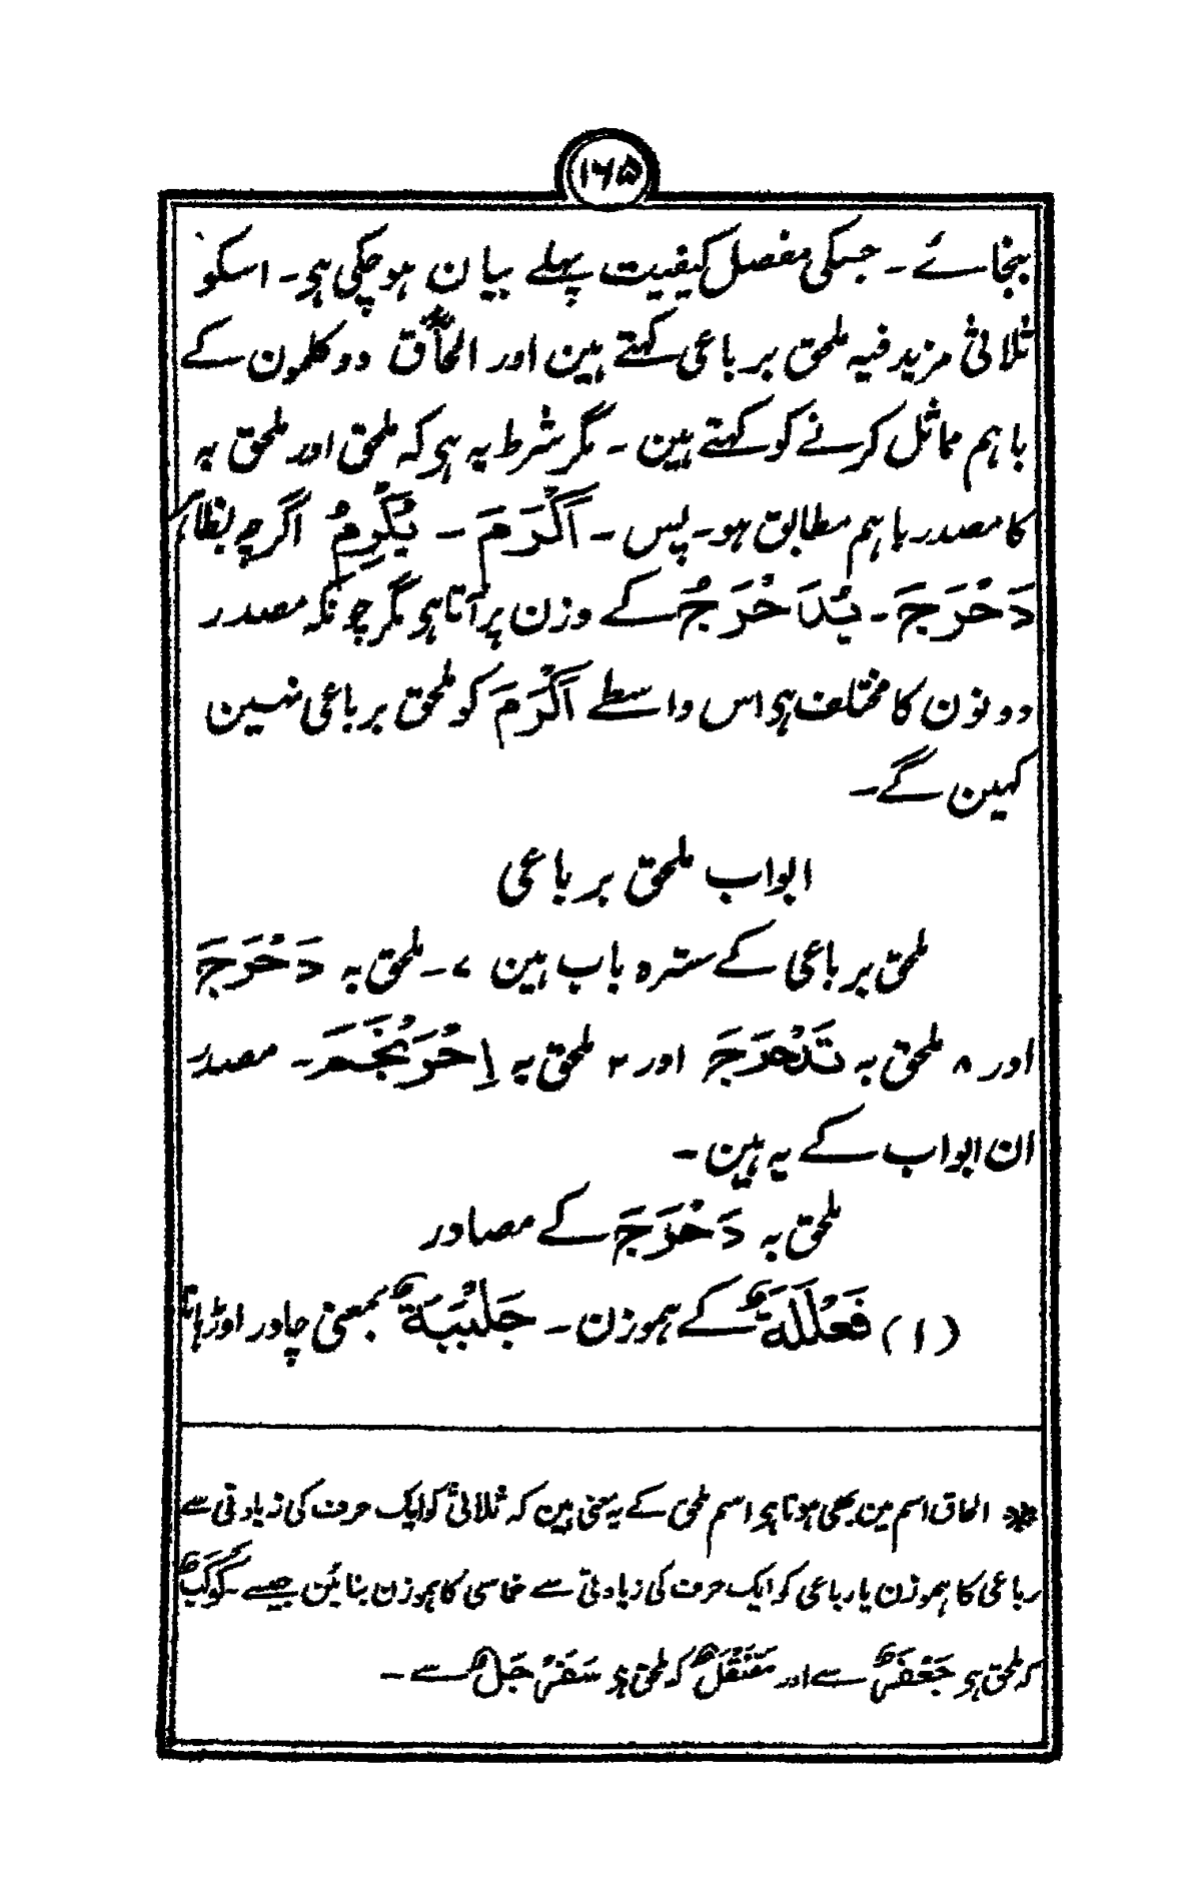 ۱۶۵
بنجائے ۔ جسکی مفصل کیفیت پہلے بیان ہو چکی ہی ۔ اسکو
ثلاثی مزید فیہ ملحق برباعی کہتے ہین اور الحاق* دو کلمون کے
باہم مماثل کرنے کو کہتے ہین ۔ مگر شرط یہ ہی کہ ملحق اور ملحق بہ
کا مصدر باہم مطابق ہو ۔ پس ۔ اَکْرَمَ ۔ یُکْرِمُ اگرچہ بظاہر
دَحْرَجَ ۔ یُدَحْرِجُ کے وزن پر آتا ہی مگر چونکہ مصدر
دونون کا مختلف ہی اس واسطے اَکْرَمَ کو ملحق برباعی نہین
کہین گے ۔
ابواب ملحق برباعی
ملحق برباعی کے سترہ باب ہین ۷ ۔ ملحق بہ دَحْرَجَ
اور ۸ ملحق بہ تَدَحْرَجَ اور ۲ ملحق بہ اِحْرَنْجَمَ ۔ مصدر
ان ابواب کے یہ ہین ۔
ملحق بہ دَحْرَجَ کے مصادر
(۱) فَعْلَلَةٌ کے ہموزن ۔ جَلْبَبَةٌ بمعنی چادر اوڑہانا
* الحاق اسم مین بھی ہوتا ہی اسم ملحق کے یہ معنی ہین کہ ثلاثی کو ایک حرف کی زیادتی سے
رباعی کا ہموزن یا رباعی کو ایک حرف کی زیادتی سے خماسی کا ہموزن بنائین جیسے ۔ کَوْکَبٌ
کہ ملحق ہی جَعْفَرٌ سے اور کہ ملحق ہی سَفَرْجَلٌ سے ۔